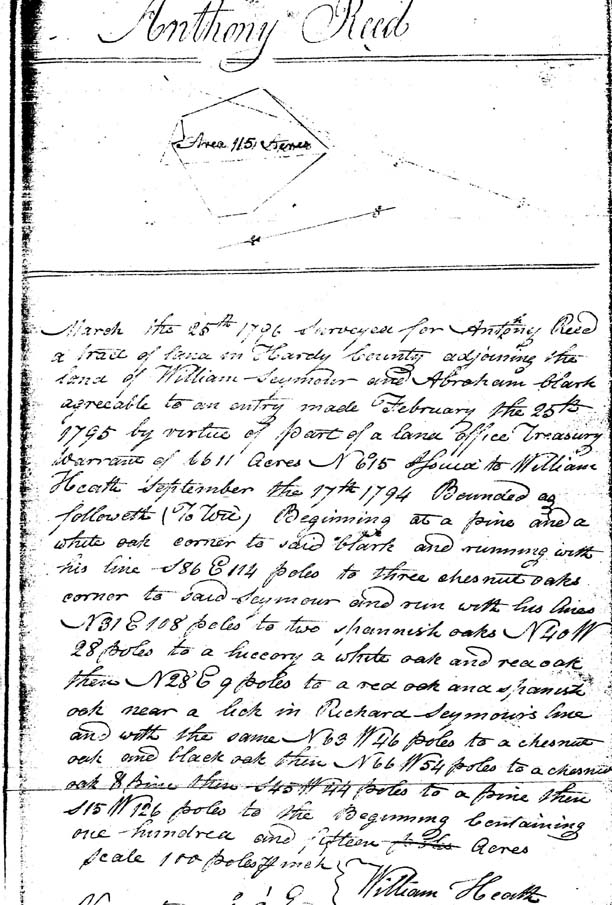 Anthony Reed
Area 115 Acres
March the 25th 1796 Surveyed for Anthony Reed
a tract of land in Hardy County adjoining the
land of William Seymour and Abraham Clark
agreeable to an entry made February the 25th
1795 by virtue of part of a land office Treasury
Warrant of 6611 Acres No 15 Issued to William
Heath September the 17th 1794 Bounded as
followeth (To Wit) Beginning at a pine and a
white oak corner to said Clark and running with
his line S86 E 114 poles to three chesnut oaks
corner to said Seymour and run with his lines
N31 E 108 poles to two spannish oaks N40W
28 poles to a hiccory a white oak and red oak
then N28 E 9 poles to a red oak and spanish
oak near a lick in Richard Seymour's line
and with the same N63 W46 poles to a chesnut
oak and black oak then N66 W54 poles to a chesnut
oak & pine then S45 W44 poles to a pine then
S15 W126 poles to the Beginning Containing
one hundred and fifteen Acres
Scale 100 poles pr inch
William Heath